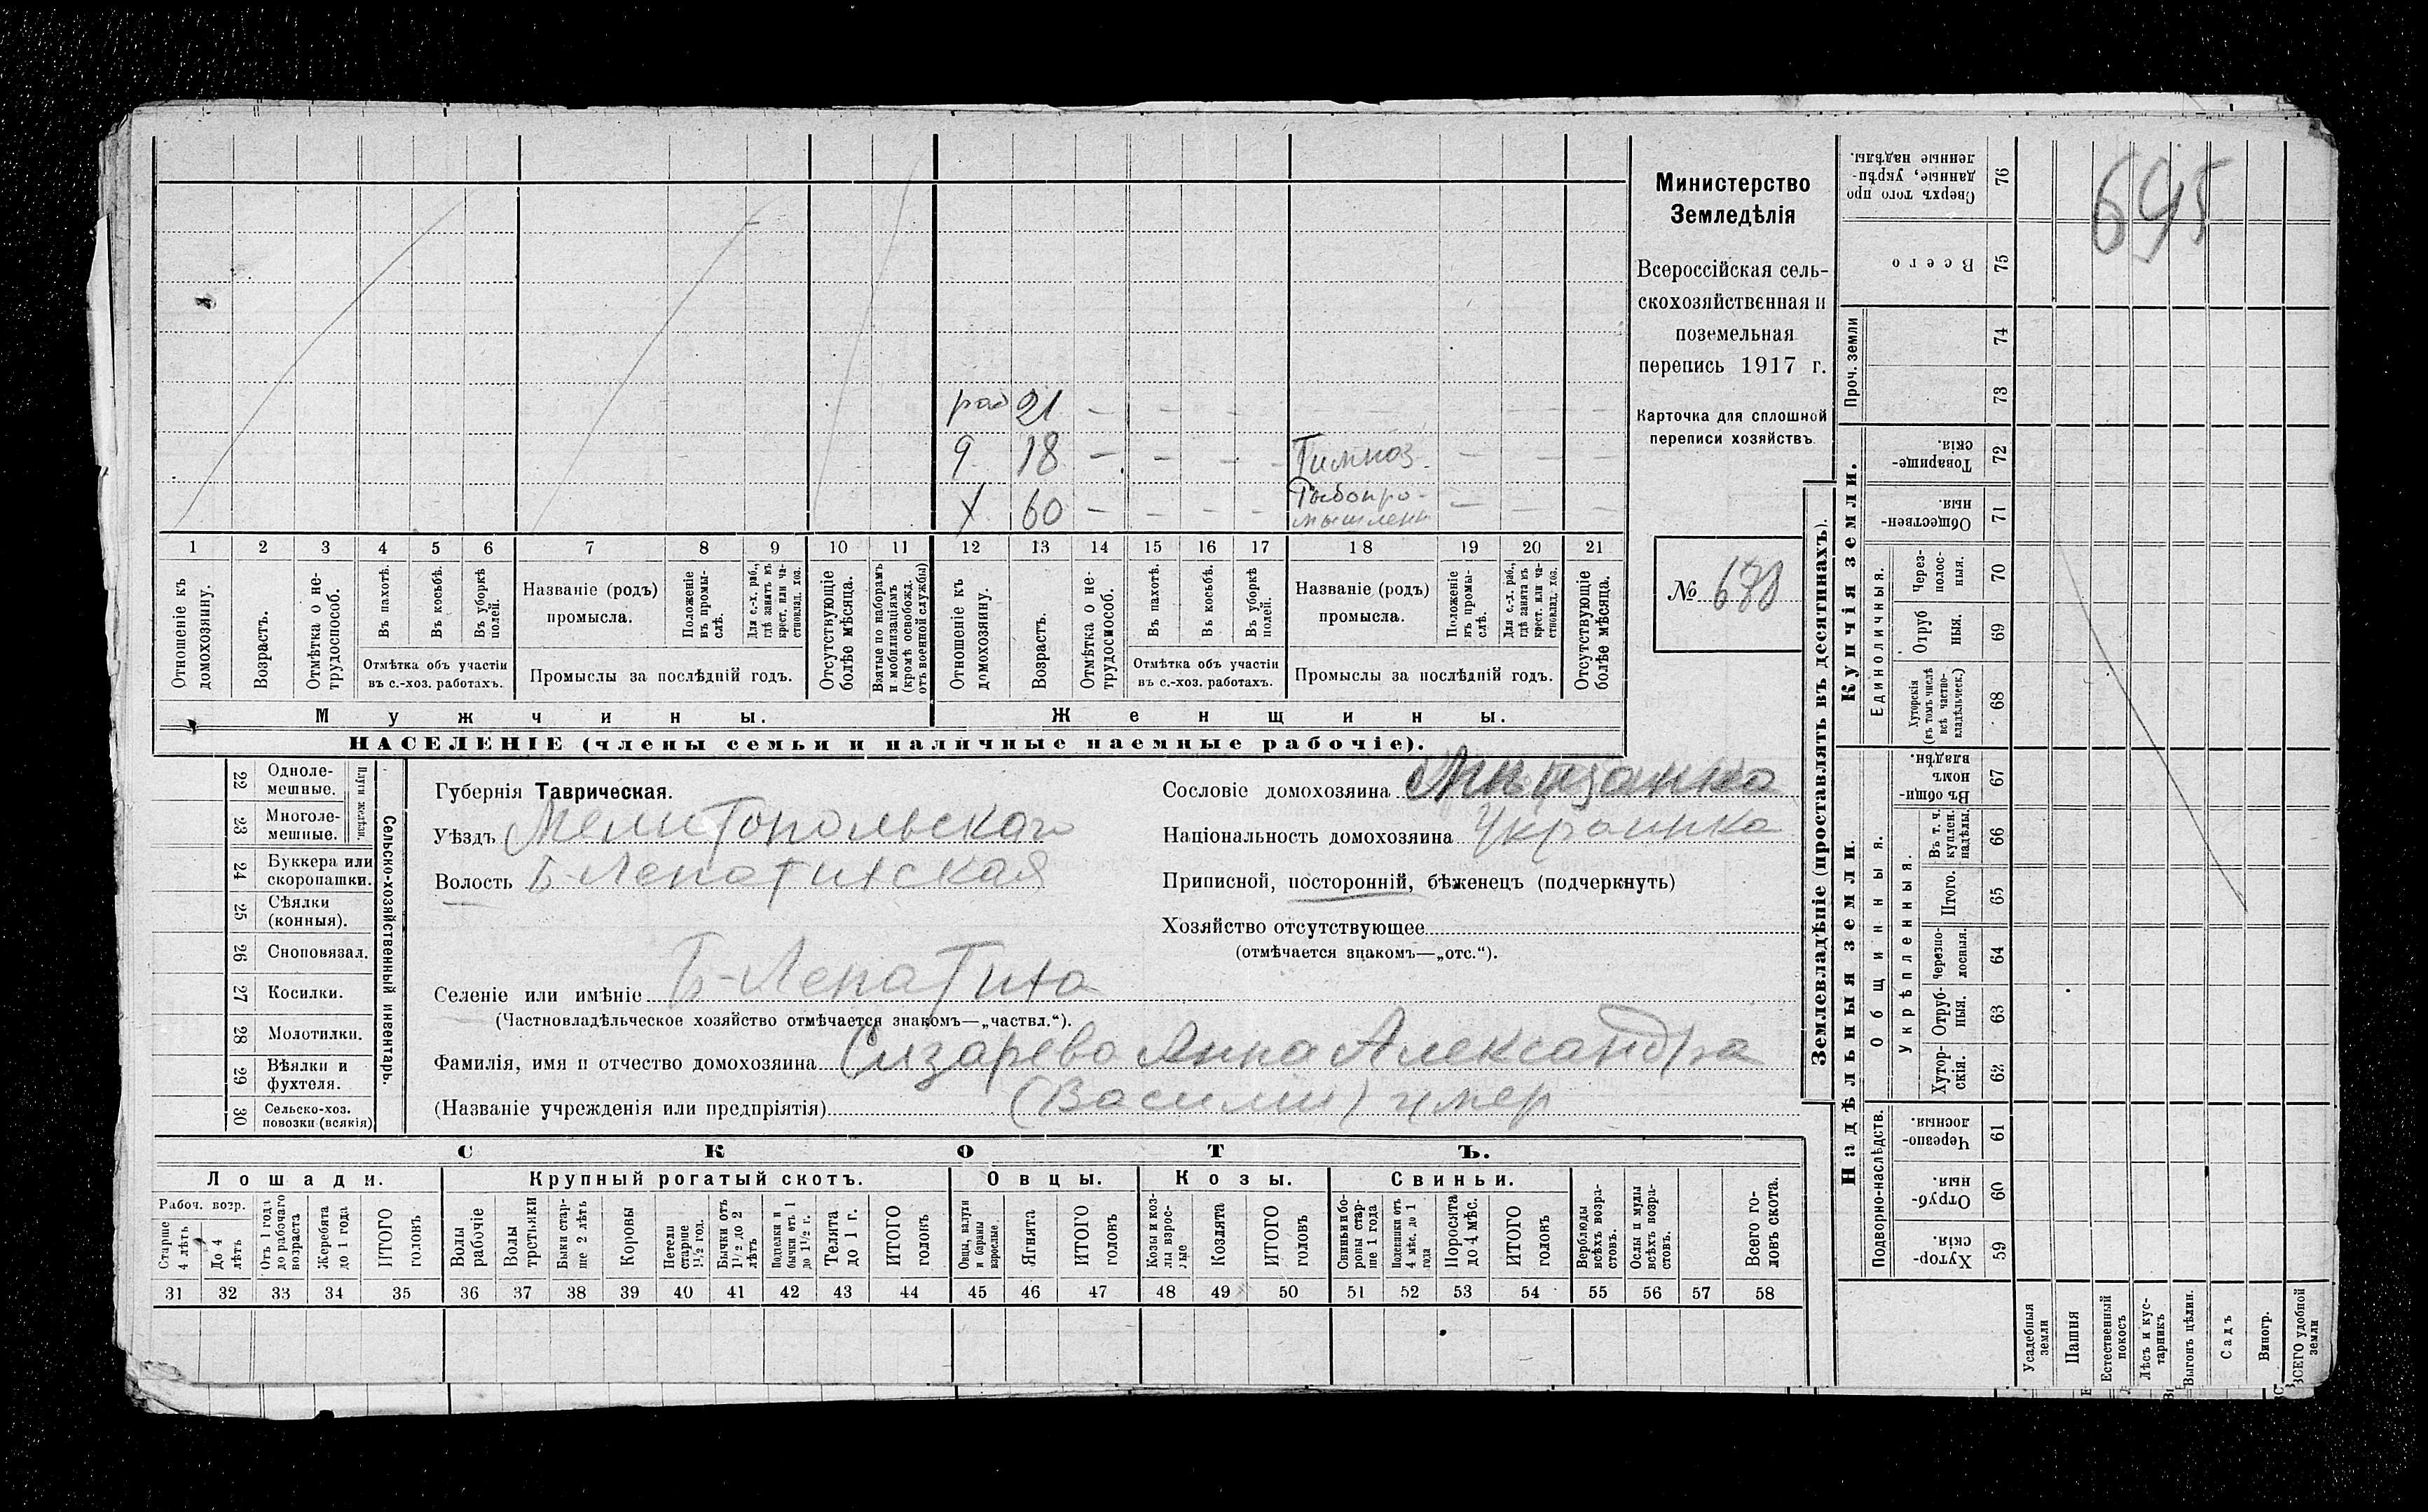 695
рад 21 – – – – – – – –
9 18 – – – – Гимназ. – – –
х 60 – – – – Рыбопро-
мышлен – – –
1 2 3 4 5 6 7 8 9 10 11 12 13 14 15 16 17 18 19 20 21
Отношеніе къ домохозяину.
Возрастъ.
Отмѣтка о не-
трудоспособ.
Въ пахотѣ.
Въ косьбѣ.
Въ уборкѣ
полей.
Отмѣтка объ участіи
въ с.-хоз. работахъ.
Названіе (родъ)
промысла.
Положеніе
въ промы-
слѣ.
Для с.-х. раб.,
гдѣ занятъ въ
крест. или ча-
стновлад. хоз.
Промыслы за послѣдній годъ.
Отсутствующіе
болѣе мѣсяца.
Взятые по наборамъ
и мобилизаціямъ
(кромѣ освобожд.
отъ военной службы)
Отношеніе къ
домохозяину.
Возрастъ.
Отмѣтка о не-
трудоспособ.
Въ пахотѣ.
Въ косьбѣ.
Въ уборкѣ
полей.
Отмѣтка объ участіи
въ с.-хоз. работахъ.
Названіе (родъ)
промысла.
Положеніе
въ промы-
слѣ.
Для с.-х. раб.,
гдѣ занята въ
крест. или ча-
стновлад. хоз.
Промыслы за послѣдній годъ.
Отсутствующіе
болѣе мѣсяца.
Мужчины.
Женщины.
НАСЕЛЕНІЕ (члены семьи и наличные наемные рабочіе).
Министерство
Земледѣлія
Всероссійская сель-
скохозяйственная и
поземельная
перепись 1917 г.
Карточка для сплошной
переписи хозяйствъ
№ 678
22 Одноле-
мешные.
23 Многоле-
мешные.
Плуги желѣзн.
24 Буккера или
скоропашки.
25 Сѣялки
(конныя).
26 Сноповязал.
27 Косилки.
28 Молотилки.
29 Вѣялки и
фухтеля.
30 Сельско-хоз.
повозки (всякія)
Сельско-хозяйственный инвентарь.
Губернія Таврическая.
Уѣздъ Мелитопольскаго
Волость Б-Лепатихская
Селеніе или имѣніе Б-Лепатиха
(Частновладѣльческое хозяйство отмѣчается знакомъ—„частвл.“).
Фамилія, имя и отчество домохозяина Сизарева Анна Александра
(Названіе учрежденія или предпріятія) (Василий) умер
Сословіе домохозяина Мѣщанка
Національность домохозяина Украинка
Приписной, посторонній, бѣженецъ (подчеркнуть)
Хозяйство отсутствующее
(отмѣчается знакомъ—„отс.“).
СКОТЪ.
Лошади. Крупный рогатый скотъ. Овцы. Козы. Свиньи.
Рабоч. возр.
Старше
4 лѣтъ
До 4
лѣтъ
Отъ 1 года
до рабочаго
возраста
Жеребята
до 1 года
ИТОГО
головъ
Волы
рабочіе
Волы
третьяки
Быки стар-
ше 2 лѣтъ
Коровы
Нетели
старше
1½ год.
Бычки отъ
1½ до 2
лѣтъ
Подтелки и
бычки отъ 1
до 1½ г.
Телята
до 1 г.
ИТОГО
головъ
Овцы, валухи
и бараны
взрослые
Ягнята
ИТОГО
головъ
Козы и коз-
лы взрос-
лые
Козлята
ИТОГО
головъ
Свиньи бо-
ровы стар-
ше 1 года
Подсвинки отъ
4 мѣс. до 1
года
Поросята
до 4 мѣс.
ИТОГО
головъ
Верблюды
всѣхъ возра-
стовъ.
Ослы и мулы
всѣхъ возра-
стовъ.
Всего го-
ловъ скота.
31 32 33 34 35 36 37 38 39 40 41 42 43 44 45 46 47 48 49 50 51 52 53 54 55 56 57 58
Землевладѣніе (проставлять въ десятинахъ).
Надѣльныя земли.
Купчія земли.
Проч. земли
Подворно-наслѣдств.
Общинныя.
Укрѣпленныя.
Единоличныя.
Сверхъ того про
данные, укрѣп-
ленные надѣлы.
76
Всего
75
74
73
Товарище-
скія.
72
Обществен-
ныя.
71
Через-
полос-
ныя.
70
Отруб
ныя.
69
Хуторскія
(въ томъ числѣ
всѣ частно-
владѣльческ.)
68
Въ общи-
номъ
владѣн.
67
Въ т. ч.
куплен.
надѣлы.
66
Итого.
65
Черезпо-
лосныя.
64
Отруб-
ныя.
63
Хутор-
скія.
62
Черезпо-
лосныя
61
Отруб-
ныя.
60
Хутор-
скія.
59
Усадебныя
земли
Пашня
Естественный
покосъ
Лѣсъ и кус-
тарникъ
Выгонъ цѣлин.
Садъ
Виногр.
ВСЕГО удобной
земли